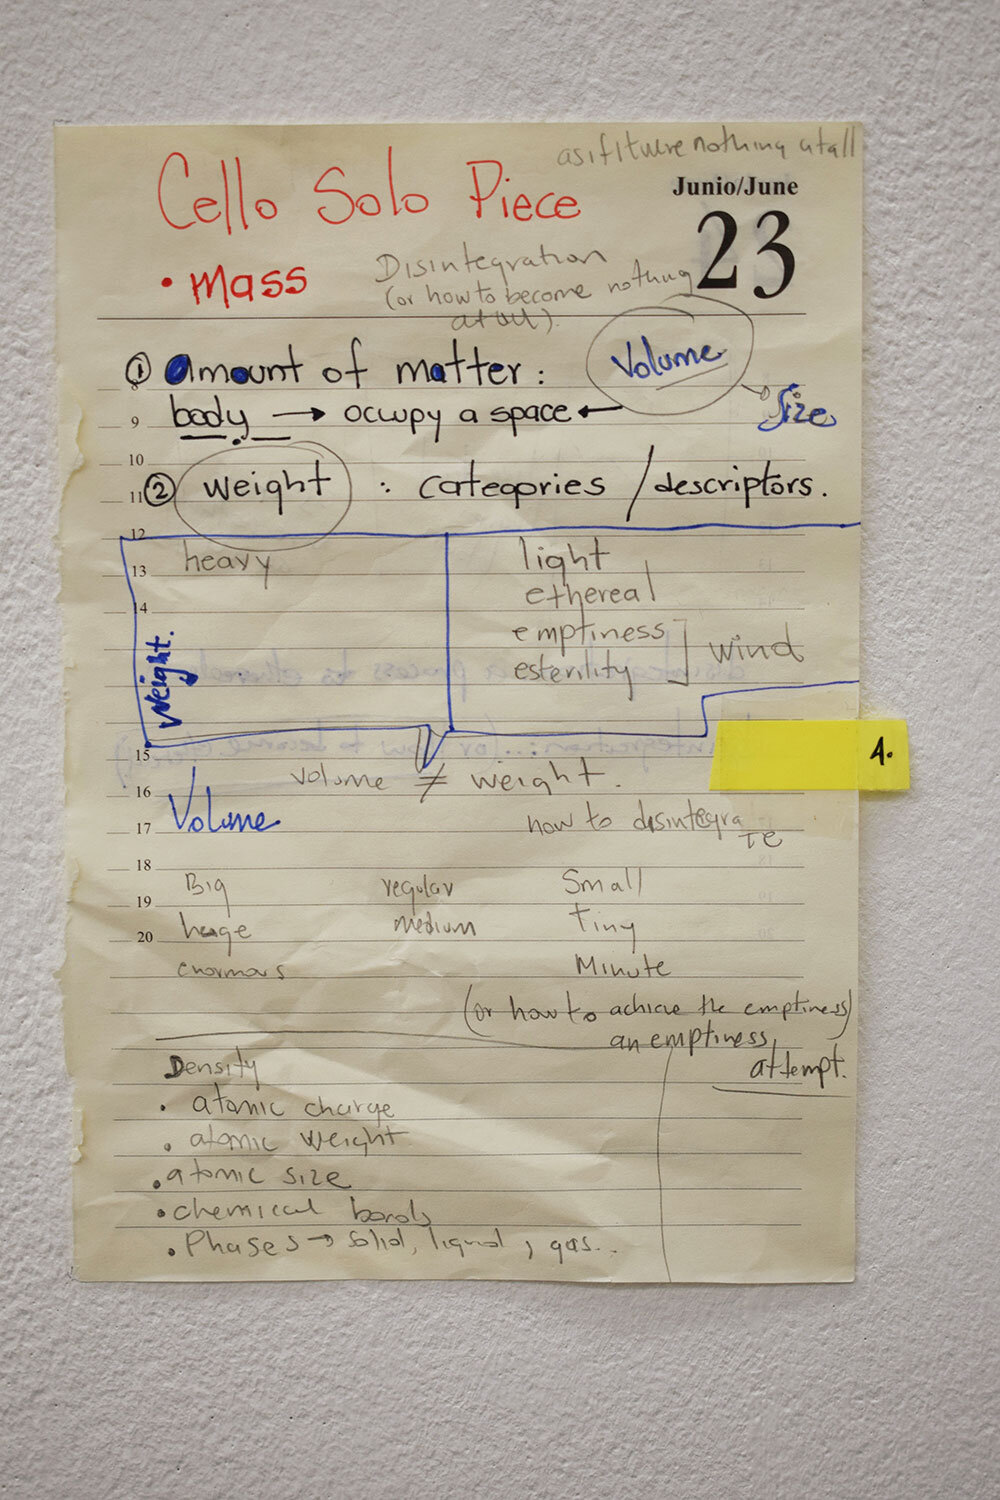 as if it were nothing at all
Junio/June
23
Cello Solo Piece
• Mass
Disintegration
(or how to become nothing
at all).
① Amount of matter :
Volume
size
8
9 body → occupy a space ←
10
11 ② weight : categories / descriptors.
12
heavy
light
13
ethereal
14
emptiness
esterility
wind
Weight.
15
A.
volume ≠ weight.
16
Volume
17
how to disintegra
te
18
Big regular Small
19
huge medium Tiny
20
enormous Minute
(or how to achieve the emptiness)
an emptiness
attempt.
Density
• atomic charge
• atomic weight
• atomic size
• chemical bonds
• Phases → solid, liquid, gas..